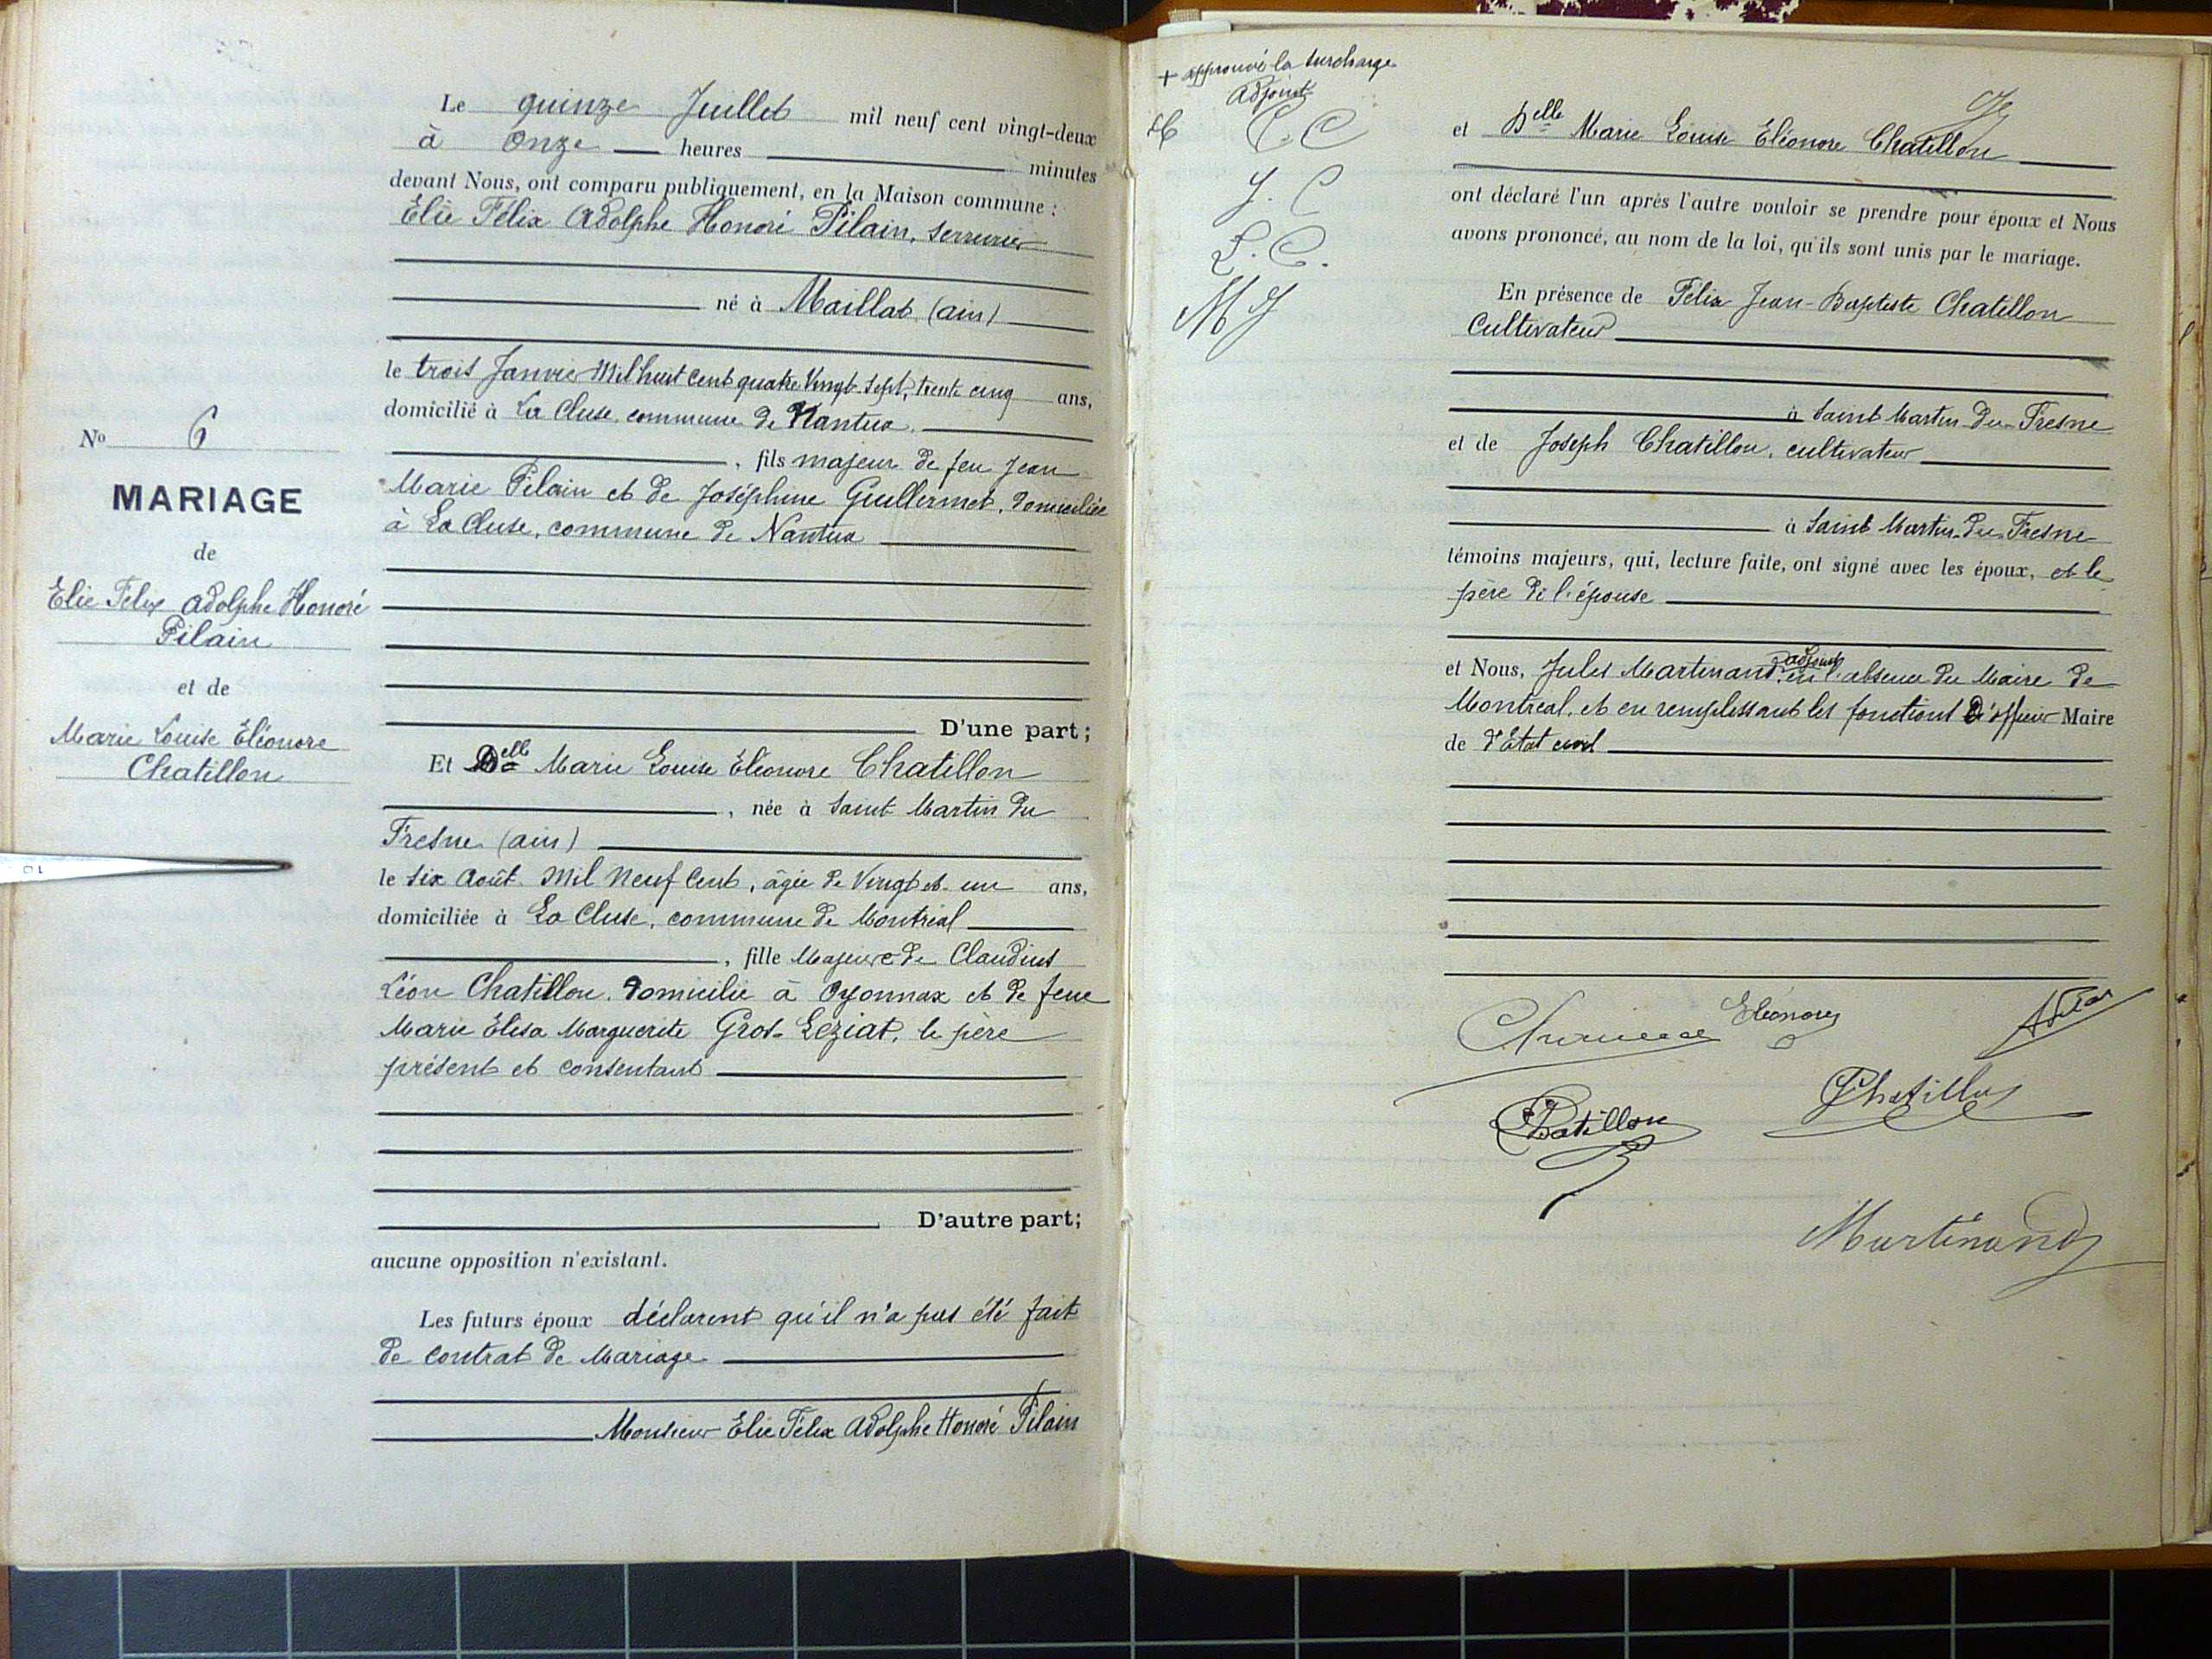 Le quinze Juillet mil neuf cent vingt-deux
à onze heures minutes
devant Nous, ont comparu publiquement, en la Maison commune :
Élie Félix Adolphe Honoré Pilain, serrurier
né à Maillat (ain)
le trois Janvier Mil huit cent quatre Vingt-Sept, trente cinq ans,
domicilié à La Cluse, commune de Nantua.
, fils majeur de feu Jean
Marie Pilain et de Joséphine Guillermet, domiciliée
à La Cluse, commune de Nantua
D'une part ;
Et Delle Marie Louise Éléonore Chatillon
, née à Saint Martin du
Fresne (ain)
le six Août Mil Neuf Cent, âgée de Vingt et un ans,
domiciliée à La Cluse, commune de Montréal
, fille Majeure de Claudius
Léon Chatillon, domicilié à Oyonnax et de feue
Marie Élisa Marguerite Gros-Leziat, le père
présent et consentant
D'autre part;
aucune opposition n'existant.
Les futurs époux déclarent qu'il n'a pas été fait
de contrat de Mariage
Monsieur Elie Félix Adolphe Honoré Pilain
No 6
MARIAGE
de
Elie Félix Adolphe Honoré
Pilain
et de
Marie Louise Éléonore
Chatillon
+ approuvé la surcharge
Adjoint
C. C
J. C
L. C.
M J
et Delle Marie Louise Éléonore Chatillon
ont déclaré l'un après l'autre vouloir se prendre pour époux et Nous
avons prononcé, au nom de la loi, qu'ils sont unis par le mariage.
En présence de Félix Jean-Baptiste Chatillon
Cultivateur
à Saint Martin-du-Fresne
et de Joseph Chatillon, cultivateur
à Saint Martin-du-Fresne
témoins majeurs, qui, lecture faite, ont signé avec les époux, et le
père de l'épouse
adjoint
et Nous, Jules Martinand, en l'absence du Maire de
Montréal, et en remplissant les fonctions d'officier Maire
de l'État civil
Eléonore
Chatillon
Chatillon
Martinand